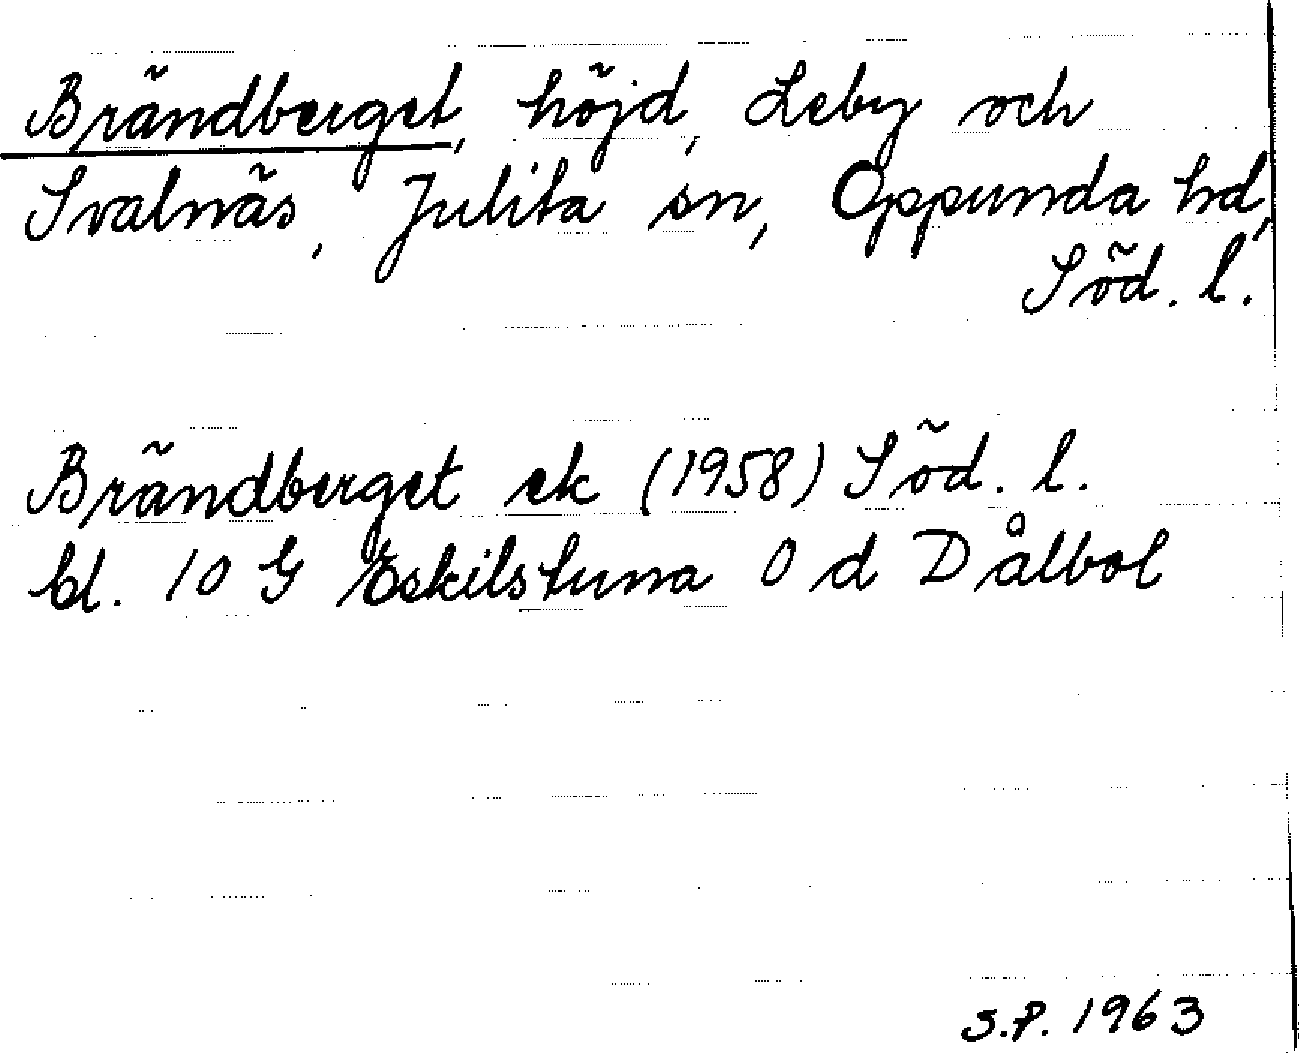 Brändberget, höjd, Leby och
Svalnäs, Julita sn, Oppunda hd,
Söd. l.
Brändberget ek (1958) Söd. l.
bl. 10 G Eskilstuna 0 d Dålbol
S.P. 1963